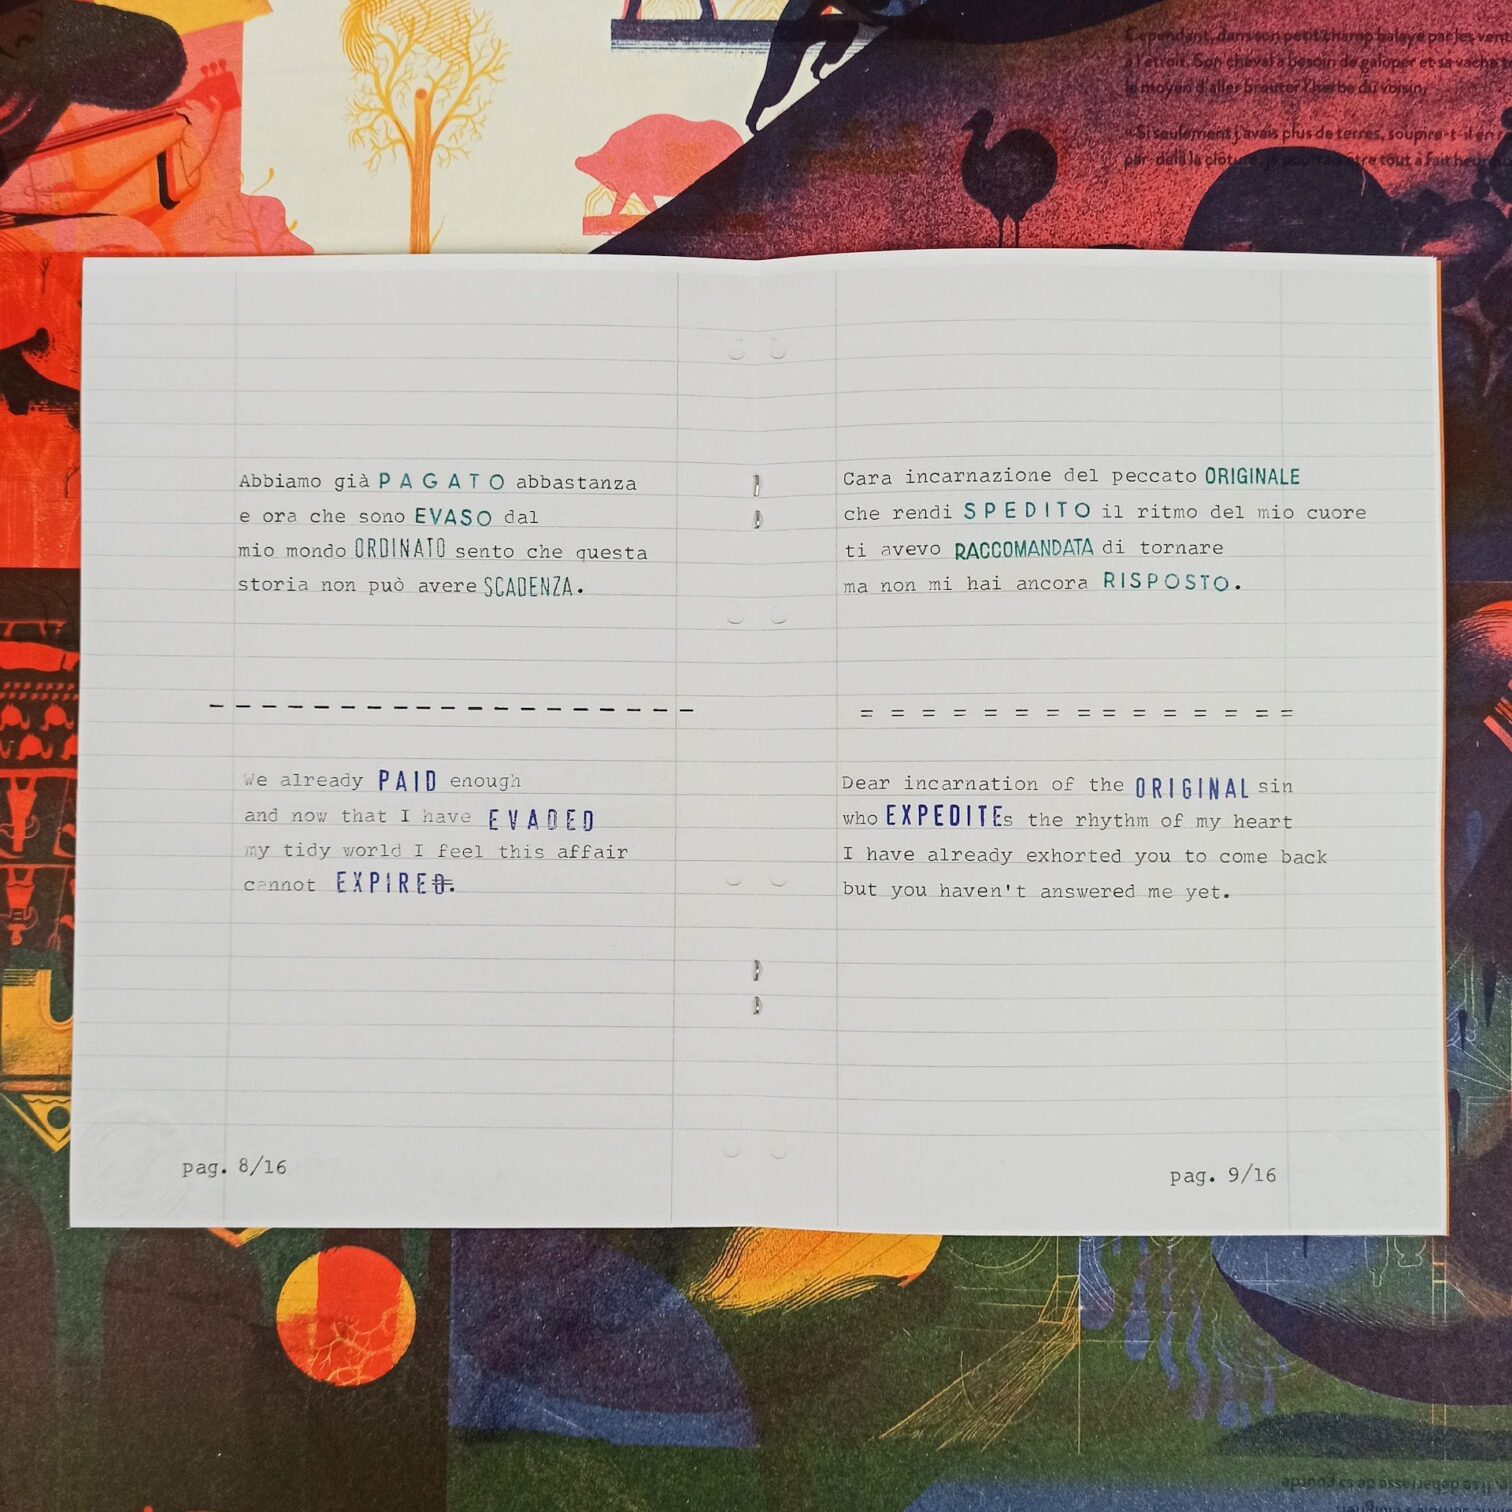 Cependant, dans son petit champ balayé par les vent
à l'étroit. Son cheval a besoin de galoper et sa vache
le moyen d'aller brouter l'herbe du voisin.
« Si seulement j'avais plus de terres, soupire-t-il en
par-delà la clôture, je pourrais être tout à fait
Abbiamo già PAGATO abbastanza
e ora che sono EVASO dal
mio mondo ORDINATO sento che questa
storia non può avere SCADENZA.
We already PAID enough
and now that I have EVADED
my tidy world I feel this affair
cannot EXPIRED.
pag. 8/16
Cara incarnazione del peccato ORIGINALE
che rendi SPEDITO il ritmo del mio cuore
ti avevo RACCOMANDATA di tornare
ma non mi hai ancora RISPOSTO.
= = = = = = = = = = = = = = =
Dear incarnation of the ORIGINAL sin
who EXPEDITEs the rhythm of my heart
I have already exhorted you to come back
but you haven't answered me yet.
pag. 9/16
Il se débarrasse de sa gourde